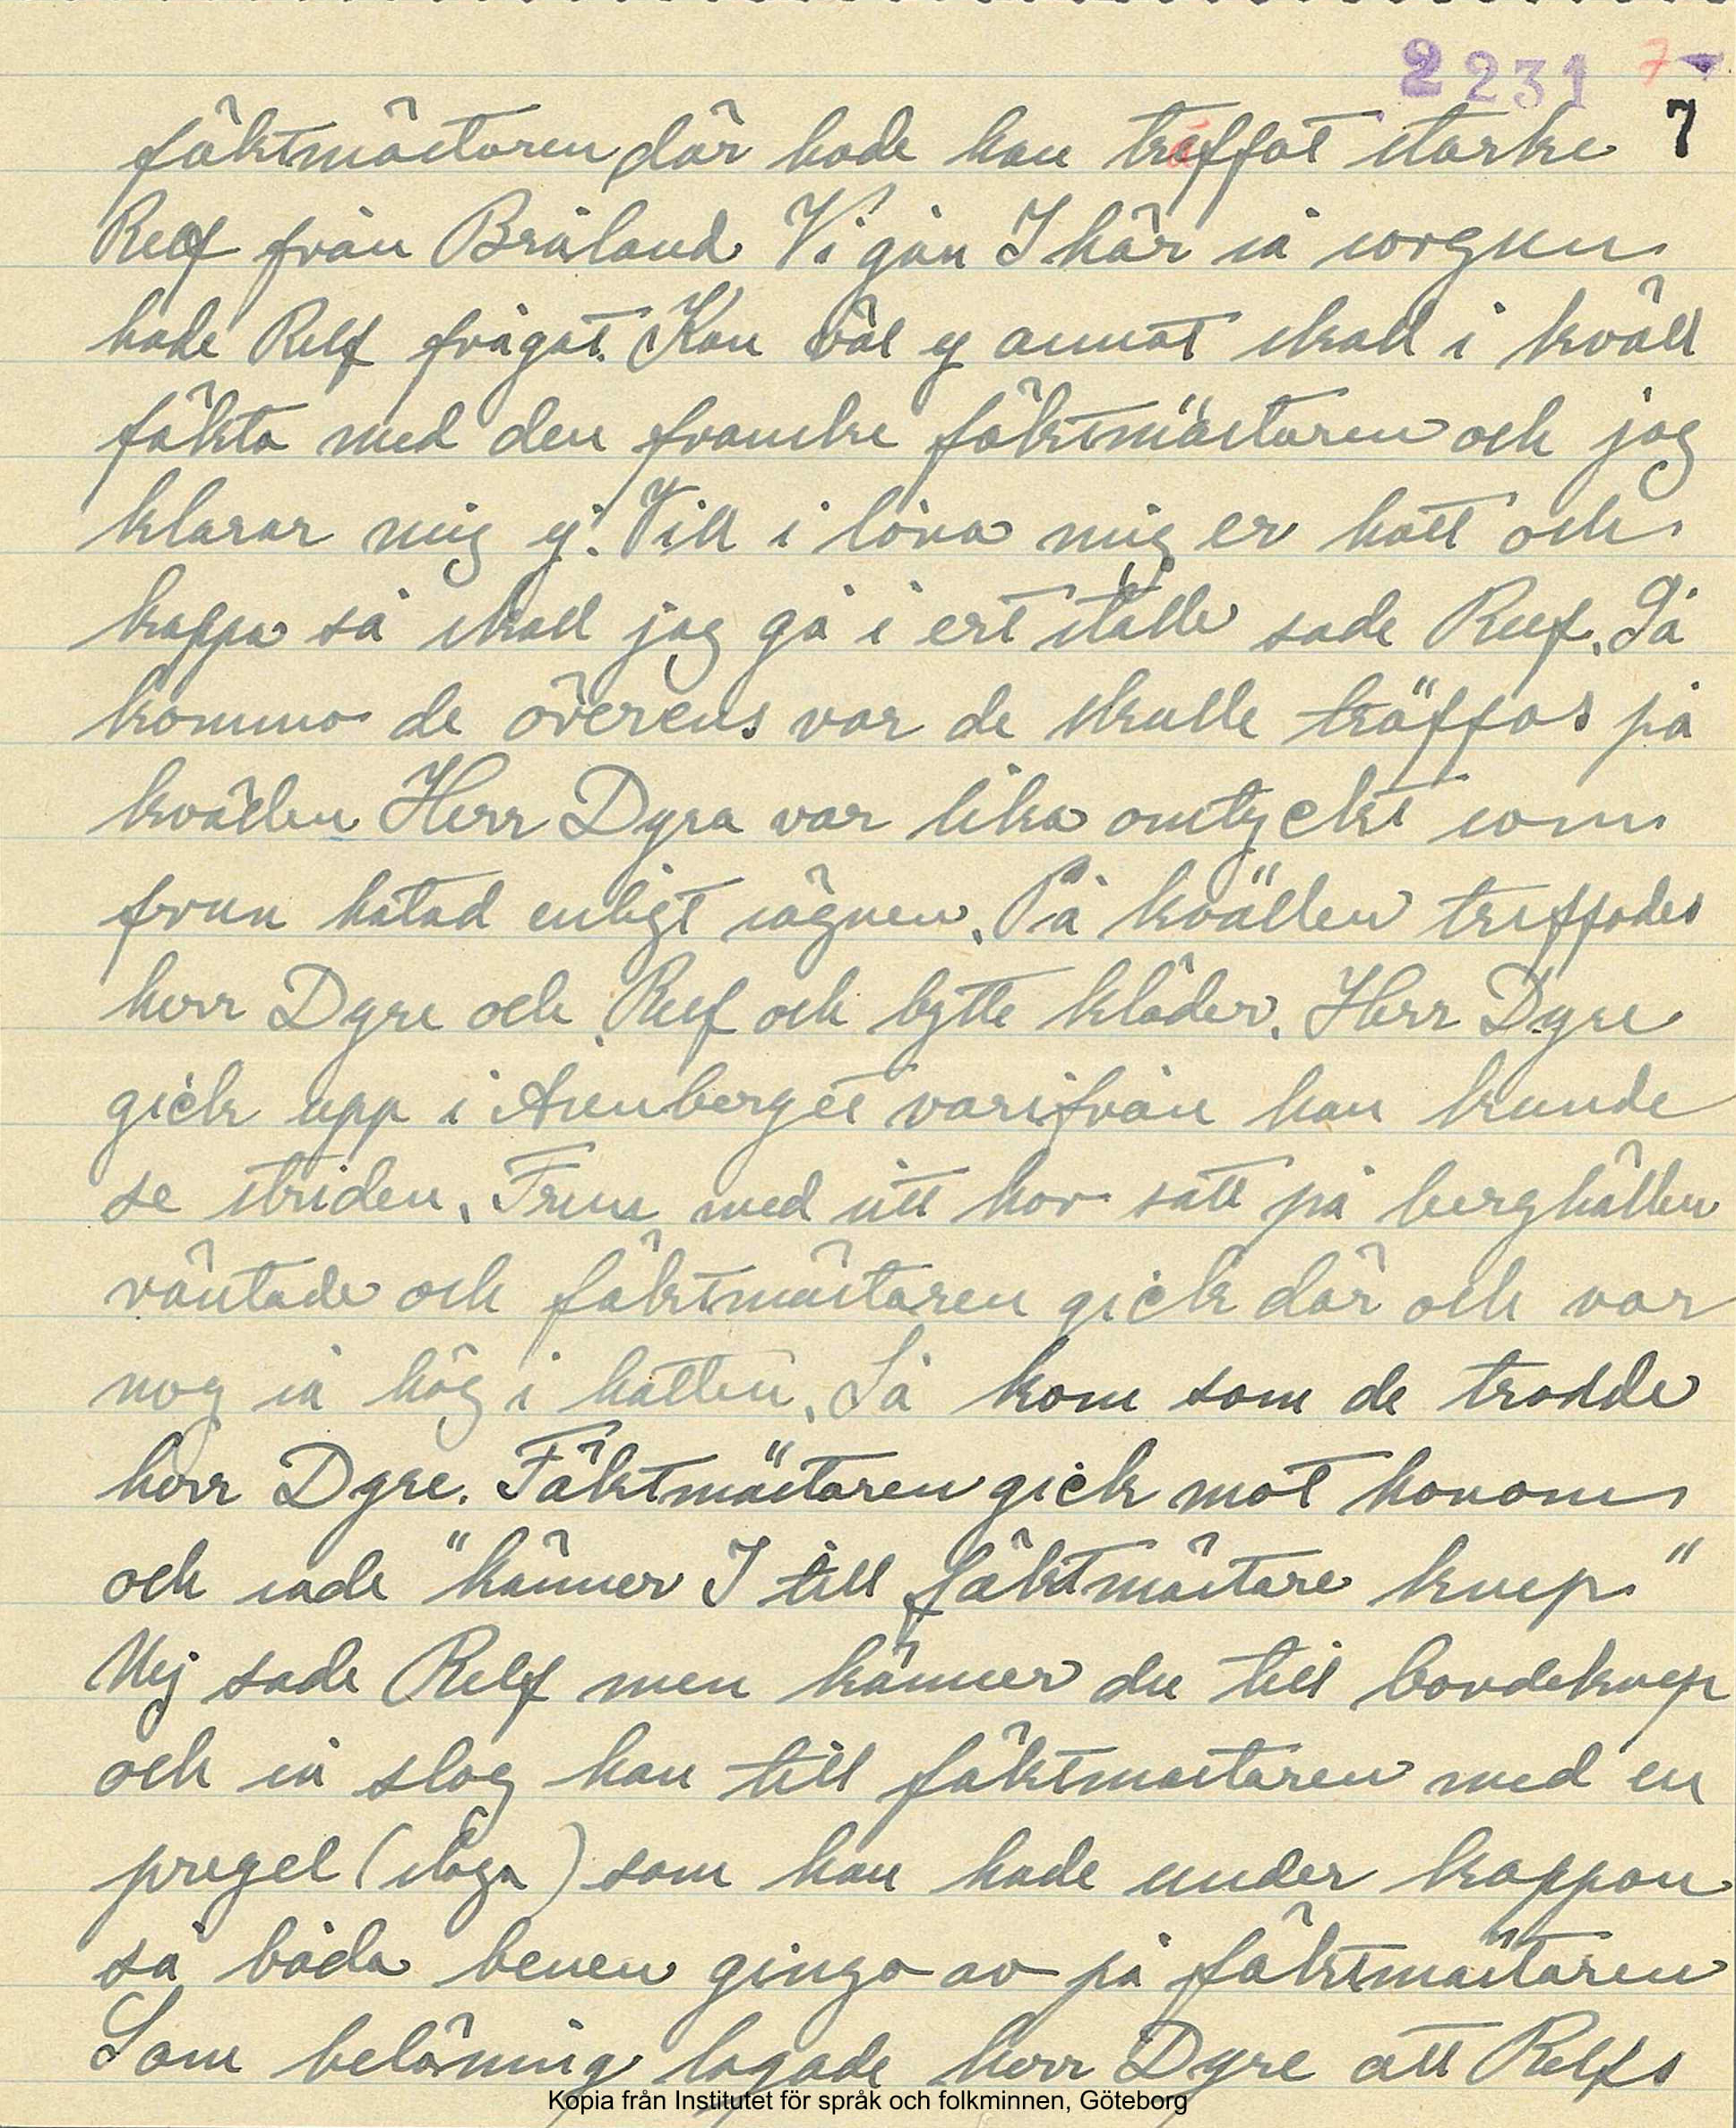 2231 7
7
fäktmästaren där hade han träffat starke
Relf från Bräland Vi gån I här så sorgsen
hade Relf frågat. Kan väl ej annat skall i kväll
fäkta med den franske fäktmästaren och jag
klarar mig ej. Vill i låna mig er hatt och
kappa så skall jag gå i ert ställe sade Relf. Så
kommo de överens var de skulle träffas på
kvällen Herr Dyra var lika omtyckt som
frun hatad enligt sägnen. På kvällen treffades
herr Dyre och Relf och bytte kläder. Herr Dyre
gick upp i Asenberget varifrån han kunde
se striden. Frun med sitt hov satt på berghällen
väntade och fäktmästaren gick där och var
nog så hög i hatten. Så kom som de trodde
herr Dyre. Fäktmästaren gick mot honom
och sade "känner I till fäktmästare knep"
Nej sade Relf men känner du till bondeknep
och så slog han till fäktmastaren med en
pregel (slaga) som han hade under kappan
så båda benen gingo av på fäktmästaren
Som belöning lagade herr Dyre att Relfs
Kopia från Institutet för språk och folkminnen, Göteborg